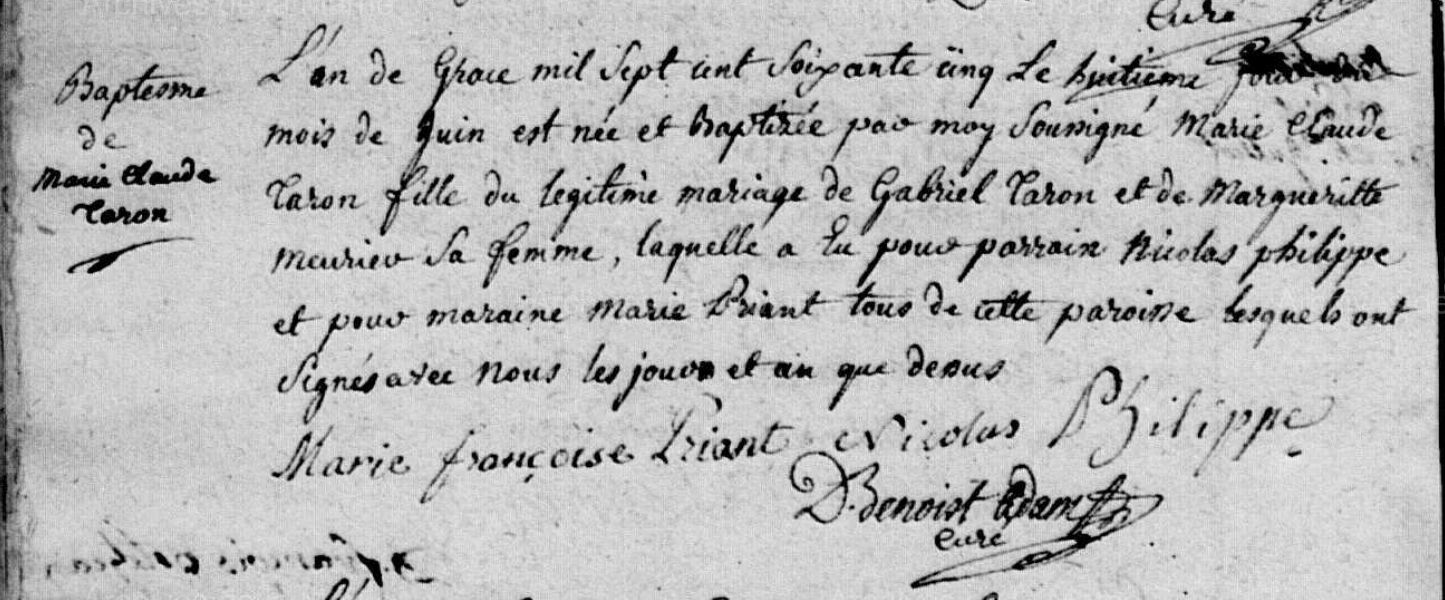 Curé
Baptesme
de
Marie Claude
Taron
L'an de Grace mil Sept cent Soixante cinq Le huitieme jour du
mois de Juin est née et Baptizée par moy Soussigné Marie Claude
Taron fille du legitime mariage de Gabriel Taron et de Margueritte
meurier Sa femme, laquelle a Eu pour parrain Nicolas philippe
et pour maraine Marie Priant tous de cette paroisse lesquels ont
Signés avec Nous les jour et an que dessus
Marie françoise Priant Nicolas Philippe
D. Benoist Adam
Curé